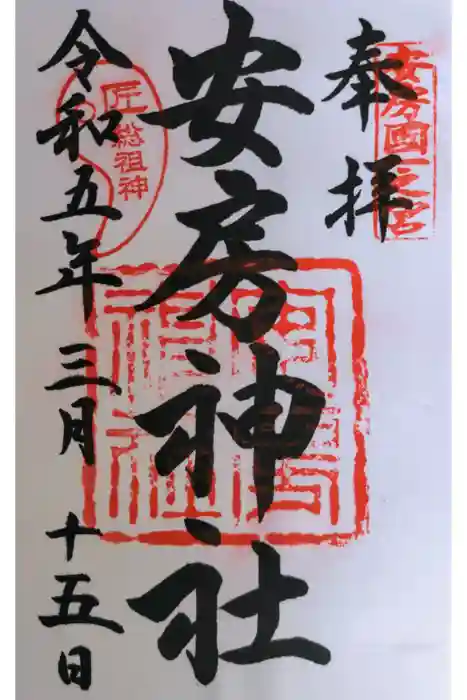 奉拝
安房國一之宮
安房神社
安房神社
令和五年三月十五日
匠総祖神